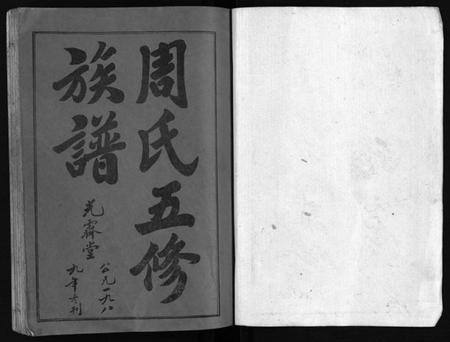 周氏五修
族譜
光霽堂
公元一九八
九年冬刊